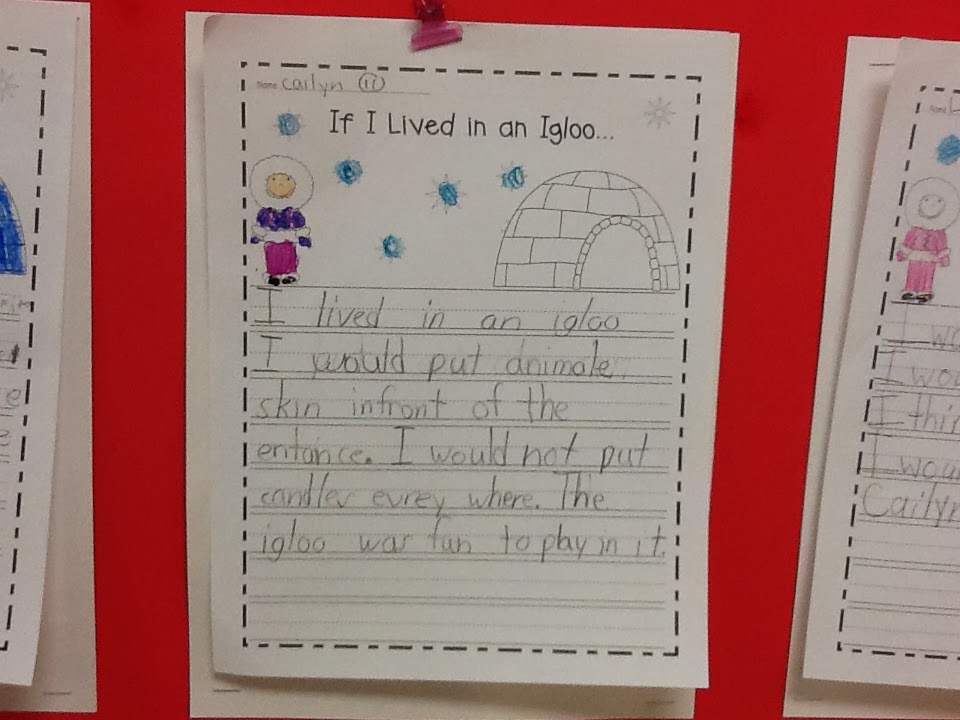 Name Cailyn 11
If I Lived in an Igloo...
I lived in an igloo
I would put animale
skin infront of the
entance. I would not put
candles evrey where. The
igloo was fun to play in it.
I
I
I thin
I
Cailyn